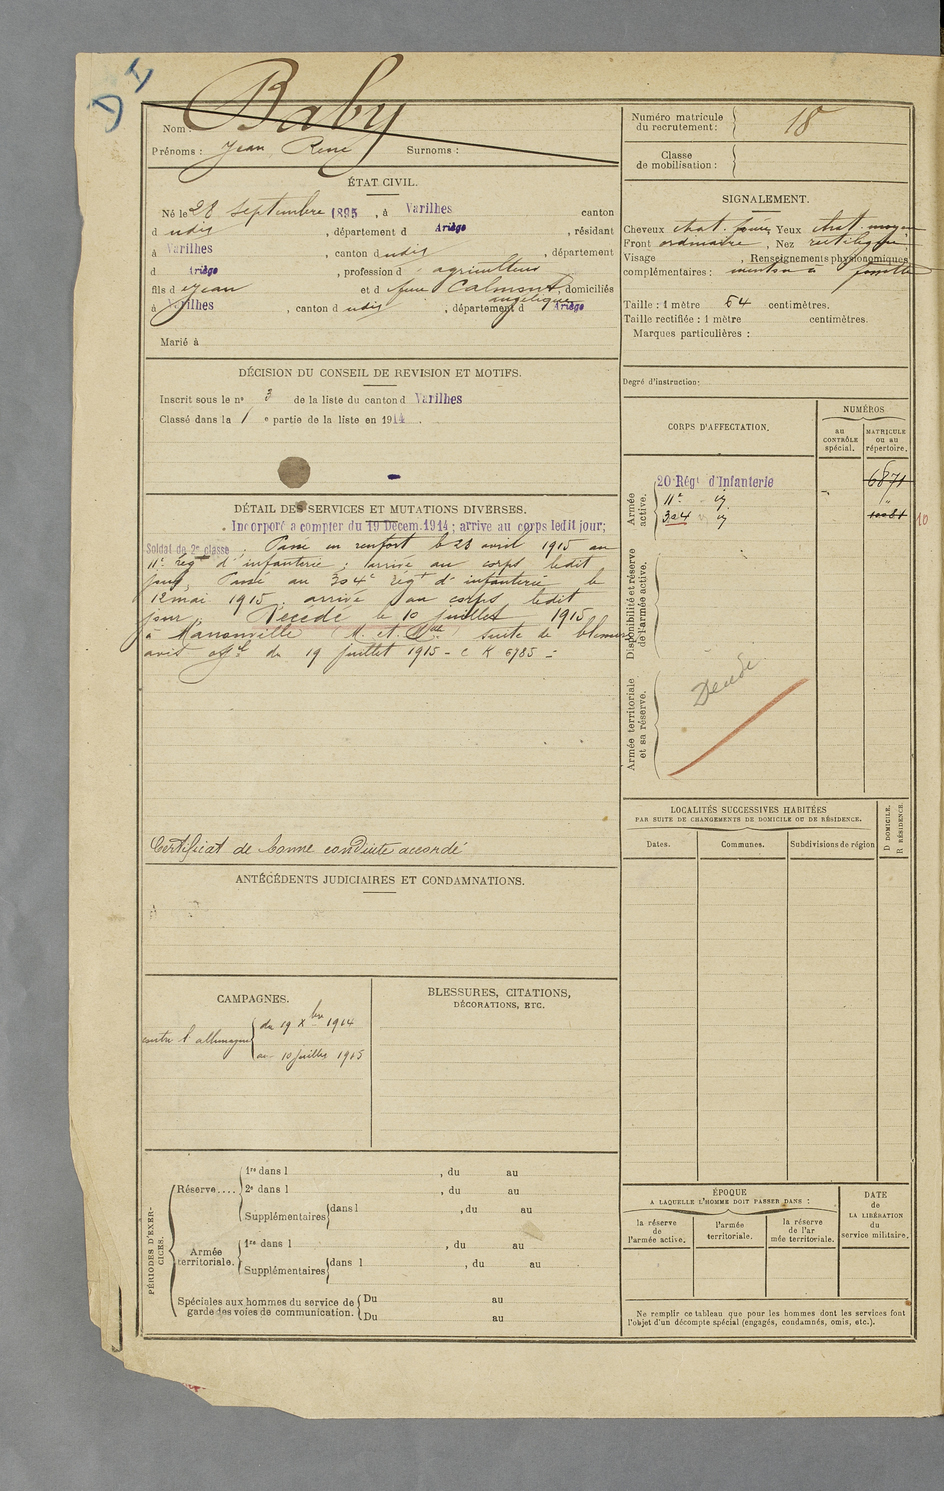 D I
Nom : Baby
Prénoms : Jean René Surnoms :
Numéro matricule
du recrutement : 18
Classe
de mobilisation :
ÉTAT CIVIL.
Né le 28 septembre 1895, à Varilhes canton
d udis, département d Ariège, résidant
à Varilhes, canton d udis, département
d Ariège, profession d agriculteur
fils d e Jean et d feue Calmont angélique, domiciliés
à Varilhes, canton d udis, département d Ariège
Marié à
SIGNALEMENT.
Cheveux chat. foncé, Yeux chat moyen
Front ordinaire, Nez rectiligne
Visage , Renseignements physionomiques
complémentaires : menton à fossette
Taille : 1 mètre 64 centimètres.
Taille rectifiée : 1 mètre centimètres.
Marques particulières :
Degré d'instruction :
DÉCISION DU CONSEIL DE REVISION ET MOTIFS.
Inscrit sous le nº 3 de la liste du canton d Varilhes
Classé dans la 1 e partie de la liste en 1914.
DÉTAIL DES SERVICES ET MUTATIONS DIVERSES.
Incorporé a compter du 19 Décem. 1914 ; arrive au corps ledit jour;
Soldat de 2e classe ; Passé en renfort le 23 avril 1915 au
11e régt d'infanterie ; arrivé au corps ledit
jour, Passé au 304e régt d'infanterie le
12 mai 1915, arrivé au corps ledit
jour. Décédé le 10 juillet 1915
à Manonville (M. et Mlle) suite de blessures
avis offel du 19 juillet 1915 - C K 6785 -
Certificat de bonne conduite accordé
CORPS D'AFFECTATION.
NUMÉROS
au
CONTRÔLE
spécial.
MATRICULE
ou au
répertoire.
Armée
active.
20 Régt d'Infanterie 6871
11e " "
304 "
10
Disponibilité et réserve
de l'armée active.
Armée territoriale
et sa réserve.
LOCALITÉS SUCCESSIVES HABITÉES
PAR SUITE DE CHANGEMENTS DE DOMICILE OU DE RÉSIDENCE.
Dates. Communes. Subdivisions de région
D DOMICILE.
R RÉSIDENCE
ANTÉCÉDENTS JUDICIAIRES ET CONDAMNATIONS.
CAMPAGNES.
contre l'allemagne du 19 Xbre 1914
au 10 juillet 1915
BLESSURES, CITATIONS,
DÉCORATIONS, ETC.
PÉRIODES D'EXER-
CICES.
Réserve....
1re dans l , du au
2e dans l , du au
Supplémentaires dans l , du au
Armée
territoriale.
1re dans l , du au
Supplémentaires dans l , du au
Spéciales aux hommes du service de
garde des voies de communication.
Du au
Du au
ÉPOQUE
A LAQUELLE L'HOMME DOIT PASSER DANS :
la réserve
de
l'armée active.
l'armée
territoriale.
la réserve
de l'ar
mée territoriale.
DATE
de
LA LIBÉRATION
du
service militaire.
Ne remplir ce tableau que pour les hommes dont les services font
l'objet d'un décompte spécial (engagés, condamnés, omis, etc.).